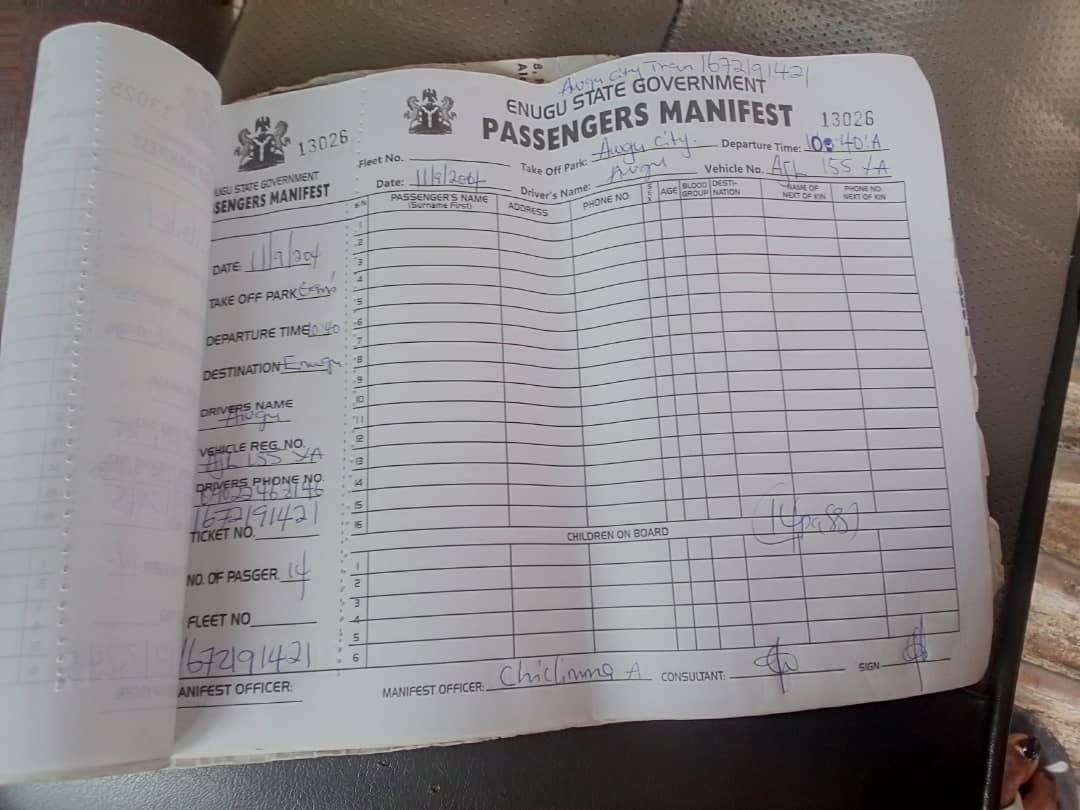 13026
STATE GOVERNMENT
SENGERS MANIFEST
DATE 11/9/204
TAKE OFF PARK
DEPARTURE TIME 10:40
DESTINATION Enugu
DRIVERS NAME
VEHICLE REG. NO.
155 XA
DRIVERS PHONE NO.
1672191421
TICKET NO.
NO. OF PASGER. 14
FLEET NO
1672191421
ANIFEST OFFICER:
City Tran 1672191421
ENUGU STATE GOVERNMENT
PASSENGERS MANIFEST 13026
Fleet No. Take Off Park: City. Departure Time: 10:40 A
Date: 11/9/204 Driver's Name: Vehicle No. 155 XA
S/N PASSENGER'S NAME (Surname First) ADDRESS PHONE NO. SEX AGE BLOOD GROUP DESTI-NATION NAME OF NEXT OF KIN PHONE NO. NEXT OF KIN
1
2
3
4
5
6
7
8
9
10
11
12
13
14
15
16
14 pass
CHILDREN ON BOARD
1
2
3
4
5
6
MANIFEST OFFICER: A CONSULTANT: SIGN